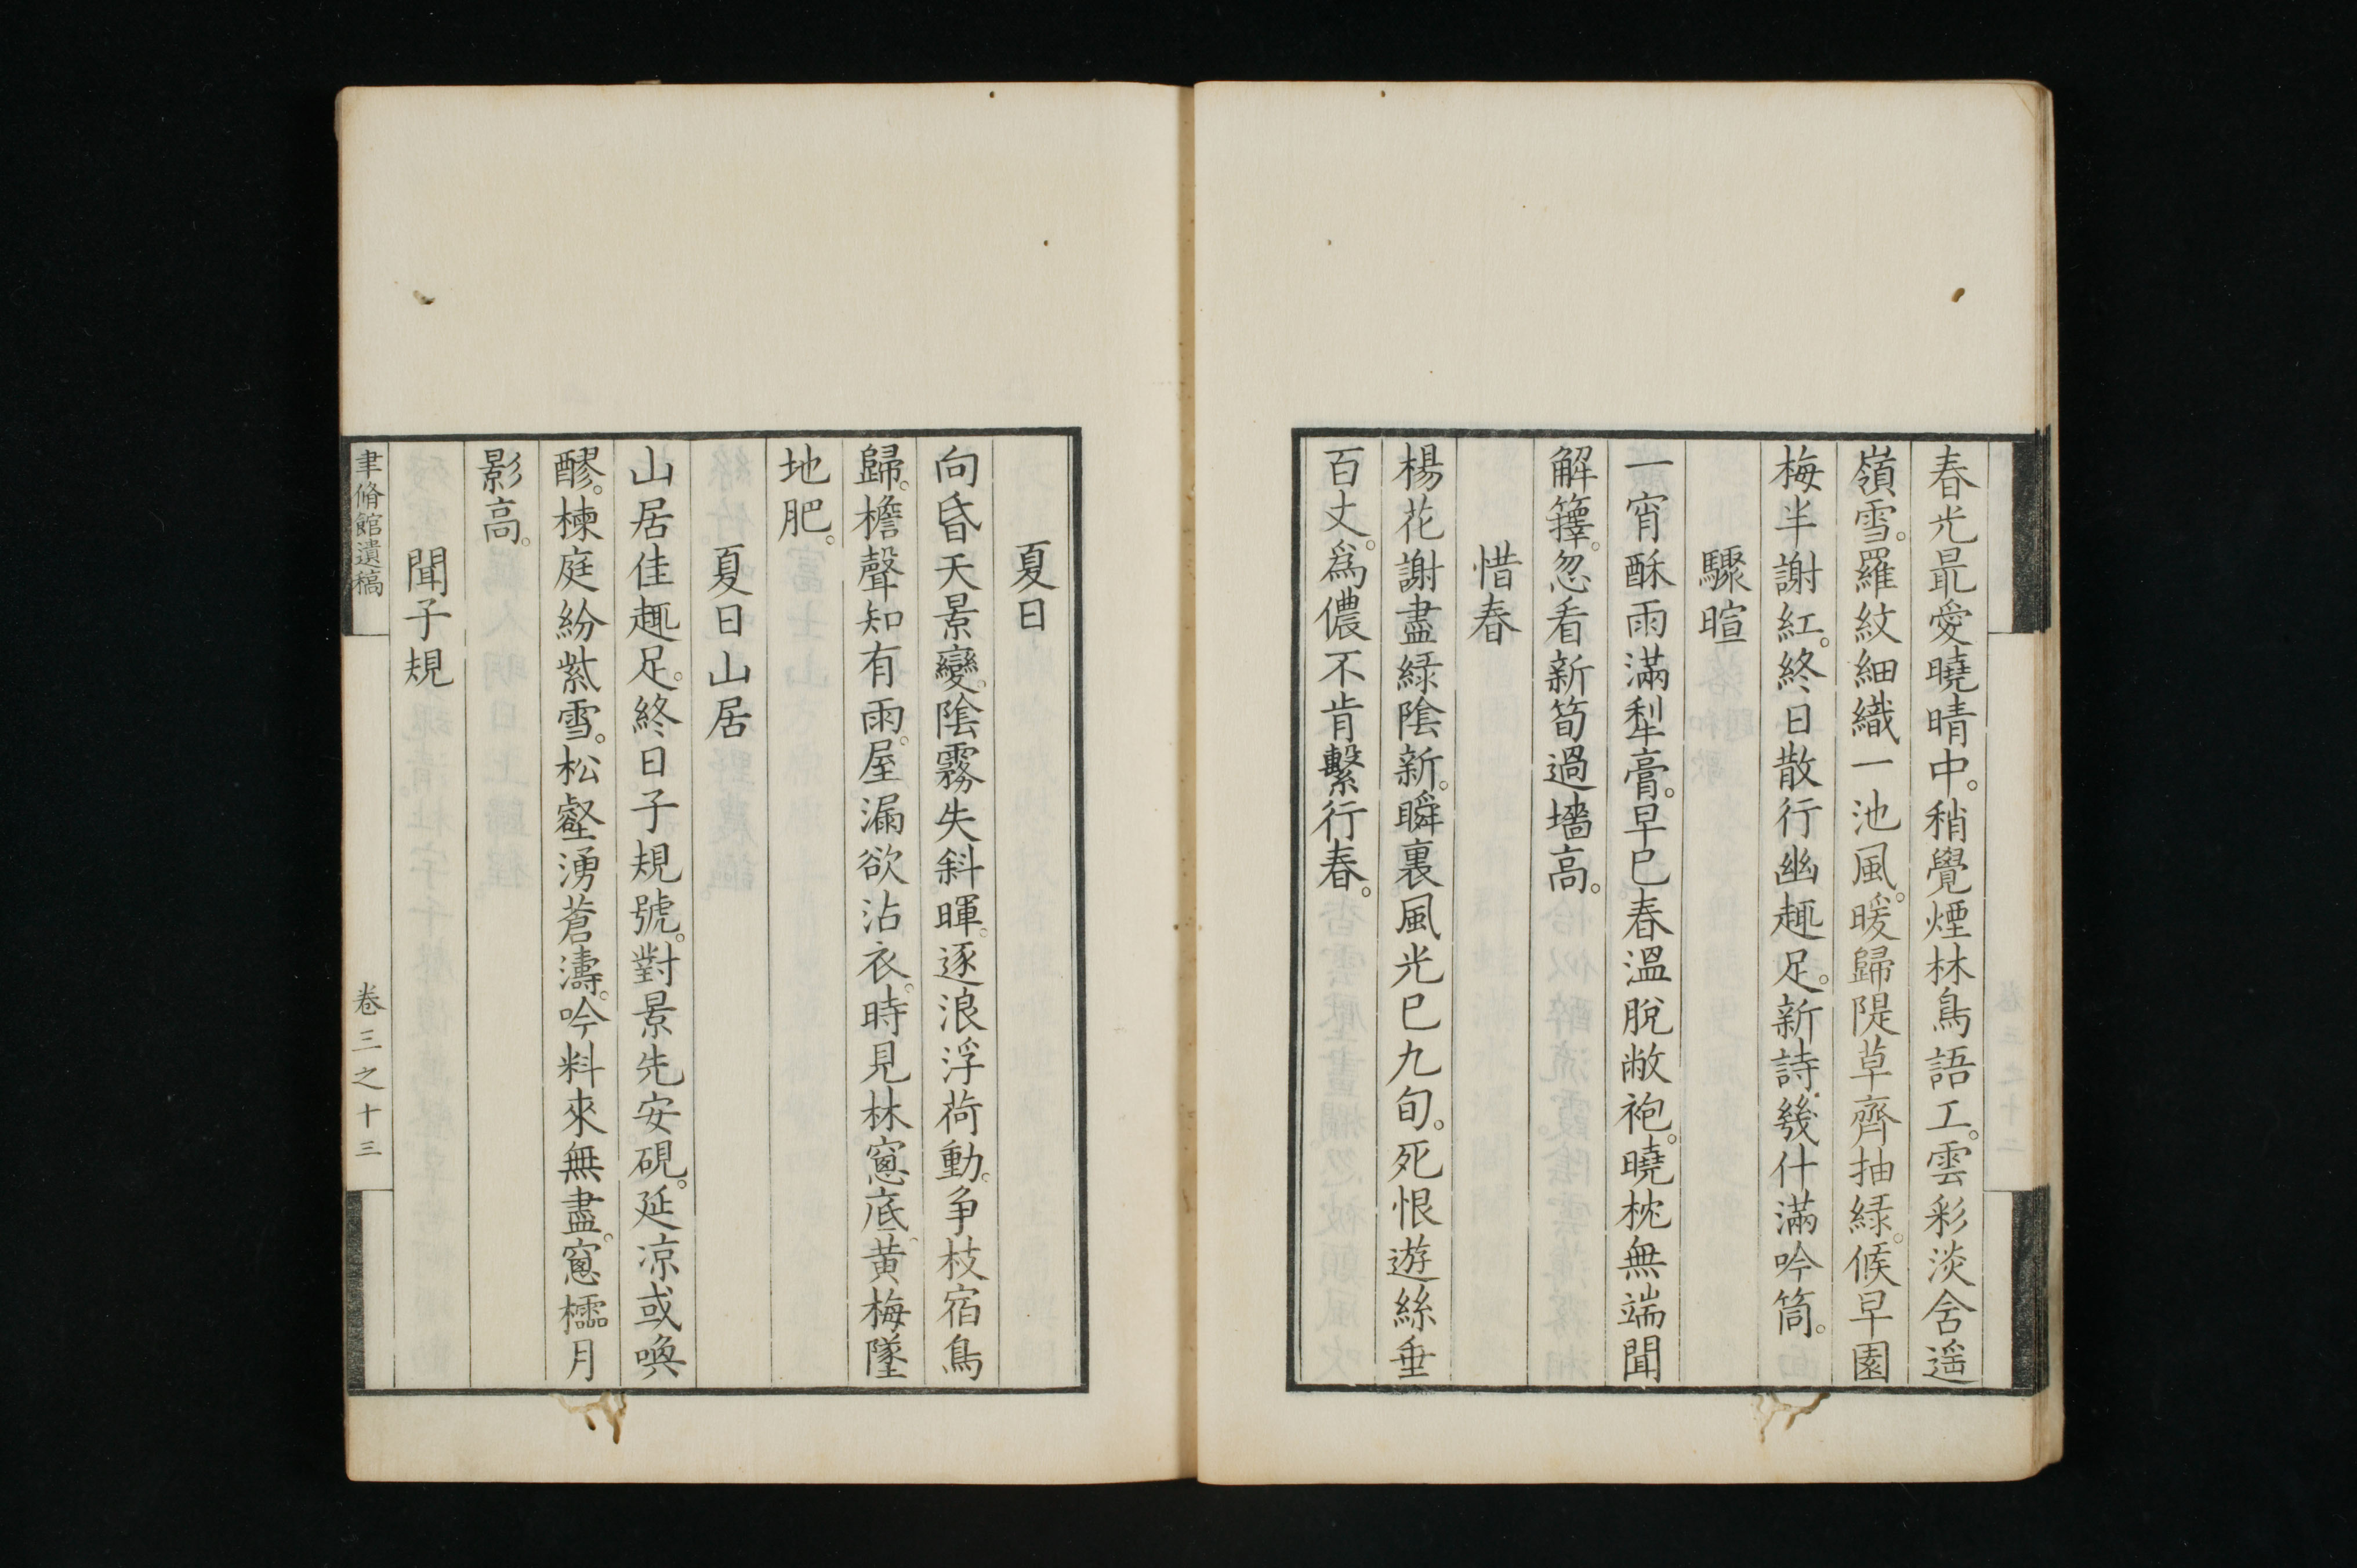 春光最愛曉晴中。稍覺煙林鳥語工。雲彩淡含遥
嶺雪。羅紋細織一池風。暖歸隄草齊抽緑。候早園
梅半謝紅。終日散行幽趣足。新詩幾什滿吟筒。
驟暄
一宵酥雨滿犁膏。早已春溫脫敝袍。曉枕無端聞
解籜。忽看新筍過墻高。
惜春
楊花謝盡緑陰新。瞬裏風光已九旬。死恨遊絲垂
百丈。爲儂不肯繫行春。
夏日
向昏天景變。陰霧失斜暉。逐浪浮荷動。争枝宿鳥
歸。檐聲知有雨。屋漏欲沾衣。時見林窻底。黄梅墜
地肥。
夏日山居
山居佳趣足。終日子規號。對景先安硯。延凉或喚
醪。楝庭紛紫雪。松壑湧蒼濤。吟料來無盡。窻櫺月
影高。
聞子規
聿脩館遺稿
卷三之十三